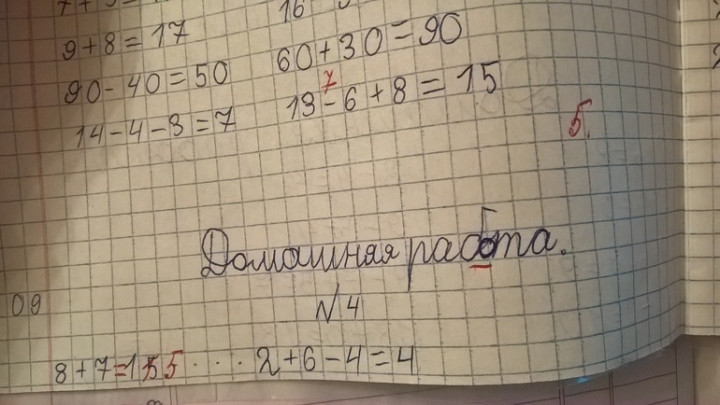 9 + 8 = 17
60 + 30 = 90
90 - 40 = 50
7
13 - 6 + 8 = 15
14 - 4 - 3 = 7
5.
Домашняя работа.
09
№ 4
8 + 7 = 15 5 . . . 2 + 6 - 4 = 4